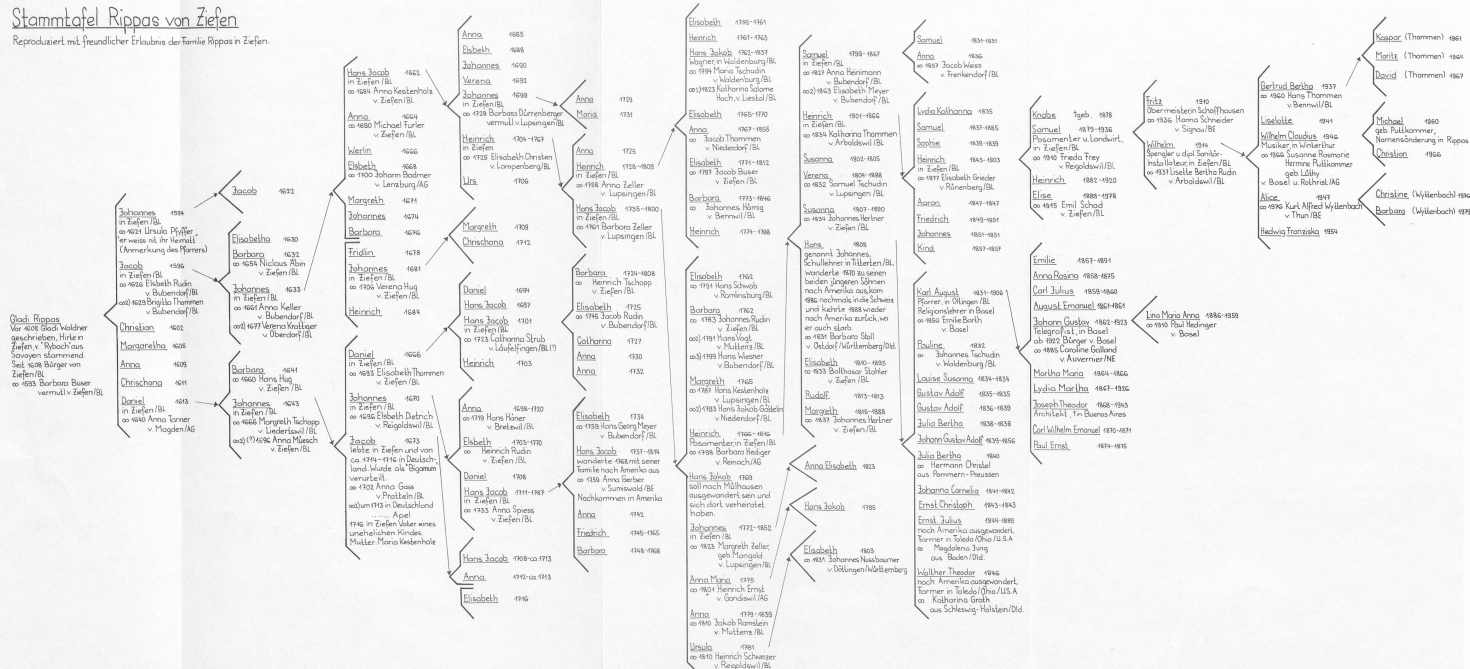 Stammtafel Rippas von Ziefen
Reproduziert mit freundlicher Erlaubnis der Familie Rippas in Ziefen.
Gladi Rippas
Vor 1608 Gladi Waldner
geschrieben, Hirte in
Ziefen, v. "Rybach" aus
Savoyen stammend.
Seit 1608 Bürger von
Ziefen/BL
∞ 1593 Barbara Buser
vermutl. v. Ziefen/BL
Johannes 1594
in Ziefen/BL
∞ 1621 Ursula Pfyffer
"er weiss nit ihr Heimatt"
(Anmerkung des Pfarrers)
Jacob 1596
in Ziefen/BL
∞ 1626 Elsbeth Rudin
v. Bubendorf/BL
∞2) 1629 Brigitta Thommen
v. Bubendorf/BL
Christian 1602
Margaretha 1605
Anna 1609
Chrischona 1611
Daniel 1613
in Ziefen/BL
∞ 1640 Anna Tanner
v. Magden/AG
Jacob 1622
Elisabetha 1630
Barbara 1632
∞ 1654 Niclaus Äbin
v. Ziefen/BL
Johannes 1633
in Ziefen/BL
∞ 1661 Anna Keller
v. Bubendorf/BL
∞2) 1677 Verena Krattiger
v. Oberdorf/BL
Barbara 1641
∞ 1660 Hans Hug
v. Ziefen/BL
Johannes 1643
in Ziefen/BL
∞ 1668 Margreth Tschopp
v. Liedertswil/BL
∞2) (?) 1696 Anna Müesch
v. Ziefen/BL
Hans Jacob 1662
in Ziefen/BL
∞ 1684 Anna Kestenholz
v. Ziefen/BL
Anna 1664
∞ 1690 Michael Furler
v. Ziefen/BL
Werlin 1666
Elsbeth 1668
∞ 1700 Johann Bodmer
v. Lenzburg/AG
Margreth 1671
Johannes 1674
Barbara 1676
Fridlin 1678
Johannes 1681
in Ziefen/BL
∞ 1706 Verena Hug
v. Ziefen/BL
Heinrich 1684
Daniel 1666
in Ziefen/BL
∞ 1693 Elisabeth Thommen
v. Ziefen/BL
Johannes 1670
in Ziefen/BL
∞ 1696 Elsbeth Dietrich
v. Reigoldswil/BL
Jacob 1673
lebte in Ziefen und von
ca. 1714-1716 in Deutsch-
land. Wurde als "Bigamum"
verurteilt.
∞ 1702 Anna Gass
v. Pratteln/BL
∞2) um 1713 in Deutschland
....... Apel
1716 in Ziefen Vater eines
unehelichen Kindes.
Mutter: Maria Kestenholz
Anna 1685
Elsbeth 1688
Johannes 1690
Verena 1692
Johannes 1698
in Ziefen/BL
∞ 1728 Barbara Dürrenberger
vermutl. v. Lupsingen/BL
Heinrich 1704-1767
in Ziefen
∞ 1725 Elisabeth Christen
v. Lampenberg/BL
Urs 1706
Margreth 1709
Chrischona 1712
Daniel 1694
Hans Jacob 1697
Hans Jacob 1701
in Ziefen/BL
∞ 1723 Catharina Strub
v. Läufelfingen/BL (?)
Heinrich 1703
Anna 1698-1720
∞ 1719 Hans Häner
v. Bretzwil/BL
Elsbeth 1703-1770
∞ Heinrich Rudin
v. Ziefen/BL
Daniel 1708
Hans Jacob 1711-1787
in Ziefen/BL
∞ 1733 Anna Spiess
v. Ziefen/BL
Hans Jacob 1708-ca. 1713
Anna 1712-ca. 1713
Elisabeth 1716
Anna 1729
Maria 1731
Anna 1725
Heinrich 1728-1809
in Ziefen/BL
∞ 1758 Anna Zeller
v. Lupsingen/BL
Hans Jacob 1735-1800
in Ziefen/BL
∞ 1761 Barbara Zeller
v. Lupsingen/BL
Barbara 1724-1808
∞ Heinrich Tschopp
v. Ziefen/BL
Elisabeth 1725
∞ 1745 Jacob Rudin
v. Bubendorf/BL
Catharina 1727
Anna 1730
Anna 1732
Elisabeth 1734
∞ 1759 Hans Georg Meyer
v. Bubendorf/BL
Hans Jacob 1737-1814
wanderte 1768 mit seiner
Familie nach Amerika aus
∞ 1759 Anna Gerber
v. Sumiswald/BE
Nachkommen in Amerika
Anna 1742
Friedrich 1745-1765
Barbara 1748-1768
Elisabeth 1759-1761
Heinrich 1761-1763
Hans Jakob 1762-1837
Wagner, in Waldenburg/BL
∞ 1794 Maria Tschudin
v. Waldenburg/BL
∞2) 1823 Katharina Salome
Hoch, v. Liestal/BL
Elisabeth 1765-1770
Anna 1767-1855
∞ Jacob Thommen
v. Niederdorf/BL
Elisabeth 1771-1812
∞ 1797 Jacob Buser
v. Ziefen/BL
Barbara 1773-1846
∞ Johannes Hämig
v. Bennwil/BL
Heinrich 1774-1798
Elisabeth 1762
∞ 1791 Hans Schwob
v. Ramlinsburg/BL
Barbara 1762
∞ 1783 Johannes Rudin
v. Ziefen/BL
∞2) 1791 Hans Vogt
v. Muttenz/BL
∞3) 1799 Hans Wiesner
v. Bubendorf/BL
Margreth 1765
∞ 1787 Hans Kestenholz
v. Lupsingen/BL
∞2) 1793 Hans Jakob Göttelin
v. Niederdorf/BL
Heinrich 1766-1816
Posamenter, in Ziefen/BL
∞ 1798 Barbara Hediger
v. Reinach/AG
Hans Jakob 1769
soll nach Mülhausen
ausgewandert sein und
sich dort verheiratet
haben.
Johannes 1772-1852
in Ziefen/BL
∞ 1823 Margreth Zeller,
geb. Mangold
v. Lupsingen/BL
Anna Maria 1775
∞ 1801 Heinrich Ernst
v. Gondiswil/AG
Anna 1779-1839
∞ 1810 Jakob Ramstein
v. Muttenz/BL
Ursula 1781
∞ 1810 Heinrich Schweizer
v. Reigoldswil/BL
Samuel 1799-1867
in Ziefen/BL
∞ 1827 Anna Heinimann
v. Bubendorf/BL
∞2) 1863 Elisabeth Meyer
v. Bubendorf/BL
Heinrich 1801-1866
in Ziefen/BL
∞ 1834 Katharina Thommen
v. Arboldswil/BL
Susanna 1802-1805
Verena 1804-1888
∞ 1832 Samuel Tschudin
v. Lupsingen/BL
Susanna 1807-1890
∞ 1834 Johannes Hertner
v. Ziefen/BL
Hans 1808
genannt Johannes,
Schullehrer in Titterten/BL,
wanderte 1870 zu seinen
beiden jüngeren Söhnen
nach Amerika aus, kam
1886 nochmals in die Schweiz
und kehrte 1888 wieder
nach Amerika zurück, wo
er auch starb.
∞ 1831 Barbara Stoll
v. Ostdorf/Württemberg/Dld.
Elisabeth 1810-1895
∞ 1833 Balthasar Stohler
v. Ziefen/BL
Rudolf 1813-1813
Margreth 1815-1888
∞ 1837 Johannes Hertner
v. Ziefen/BL
Anna Elisabeth 1823
Hans Jakob 1795
Elisabeth 1803
∞ 1831 Johannes Nussbaumer
v. Döttingen/Württemberg
Samuel 1831-1831
Anna 1836
∞ 1857 Jacob Weiss
v. Frenkendorf/BL
Lydia Katharina 1835
Samuel 1837-1885
Sophie 1839-1839
Heinrich 1843-1903
in Ziefen/BL
∞ 1877 Elisabeth Grieder
v. Rünenberg/BL
Aaron 1847-1847
Friedrich 1849-1851
Johannes 1851-1851
Kind 1857-1857
Karl August 1831-1906
Pfarrer, in Oltingen/BL
Religionslehrer in Basel
∞ 1856 Emilie Barth
v. Basel
Pauline 1832
∞ Johannes Tschudin
v. Waldenburg/BL
Louise Susanna 1834-1834
Gustav Adolf 1835-1835
Gustav Adolf 1836-1839
Julia Bertha 1838-1838
Johann Gustav Adolf 1839-1856
Julia Bertha 1840
∞ Hermann Christel
aus Pommern-Preussen
Johanna Cornelia 1841-1842
Ernst Christoph 1843-1843
Ernst Julius 1844-1889
nach Amerika ausgewandert,
Farmer in Toledo/Ohio/U.S.A.
∞ Magdalena Jung
aus Baden/Dld.
Walther Theodor 1846
nach Amerika ausgewandert,
Farmer in Toledo/Ohio/U.S.A.
∞ Katharina Groth
aus Schleswig-Holstein/Dld.
Knabe †geb. 1878
Samuel 1879-1936
Posamenter u. Landwirt,
in Ziefen/BL
∞ 1910 Frieda Frey
v. Reigoldswil/BL
Heinrich 1882-1920
Elise 1888-1978
∞ 1915 Emil Schad
v. Ziefen/BL
Emilie 1857-1891
Anna Rosina 1858-1875
Carl Julius 1859-1860
August Emanuel 1861-1861
Johann Gustav 1862-1923
Telegrafist, in Basel
ab 1922 Bürger v. Basel
∞ 1885 Caroline Galland
v. Auvernier/NE
Martha Maria 1864-1866
Lydia Martha 1867-1926
Joseph Theodor 1868-1943
Architekt, † in Buenos Aires
Carl Wilhelm Emanuel 1870-1871
Paul Ernst 1874-1875
Fritz 1910
Obermeister in Schaffhausen
∞ 1936 Hanna Schneider
v. Signau/BE
Wilhelm 1914
Spengler u. dipl. Sanitär-
Installateur, in Ziefen/BL
∞ 1937 Lisette Bertha Rudin
v. Arboldswil/BL
Lina Maria Anna 1886-1959
∞ 1910 Paul Hedinger
v. Basel
Gertrud Bertha 1937
∞ 1960 Hans Thommen
v. Bennwil/BL
Liselotte 1941
Wilhelm Claudius 1946
Musiker, in Winterthur
∞ 1966 Susanne Rosmarie
Hermine Puttkammer
geb. Lüthy
v. Basel u. Rothrist/AG
Alice 1947
∞ 1976 Kurt Alfred Wyttenbach
v. Thun/BE
Hedwig Franziska 1954
Kaspar (Thommen) 1961
Moritz (Thommen) 1964
David (Thommen) 1967
Michael 1960
geb. Puttkammer,
Namensänderung in Rippas
Christian 1966
Christine (Wyttenbach) 1976
Barbara (Wyttenbach) 1979